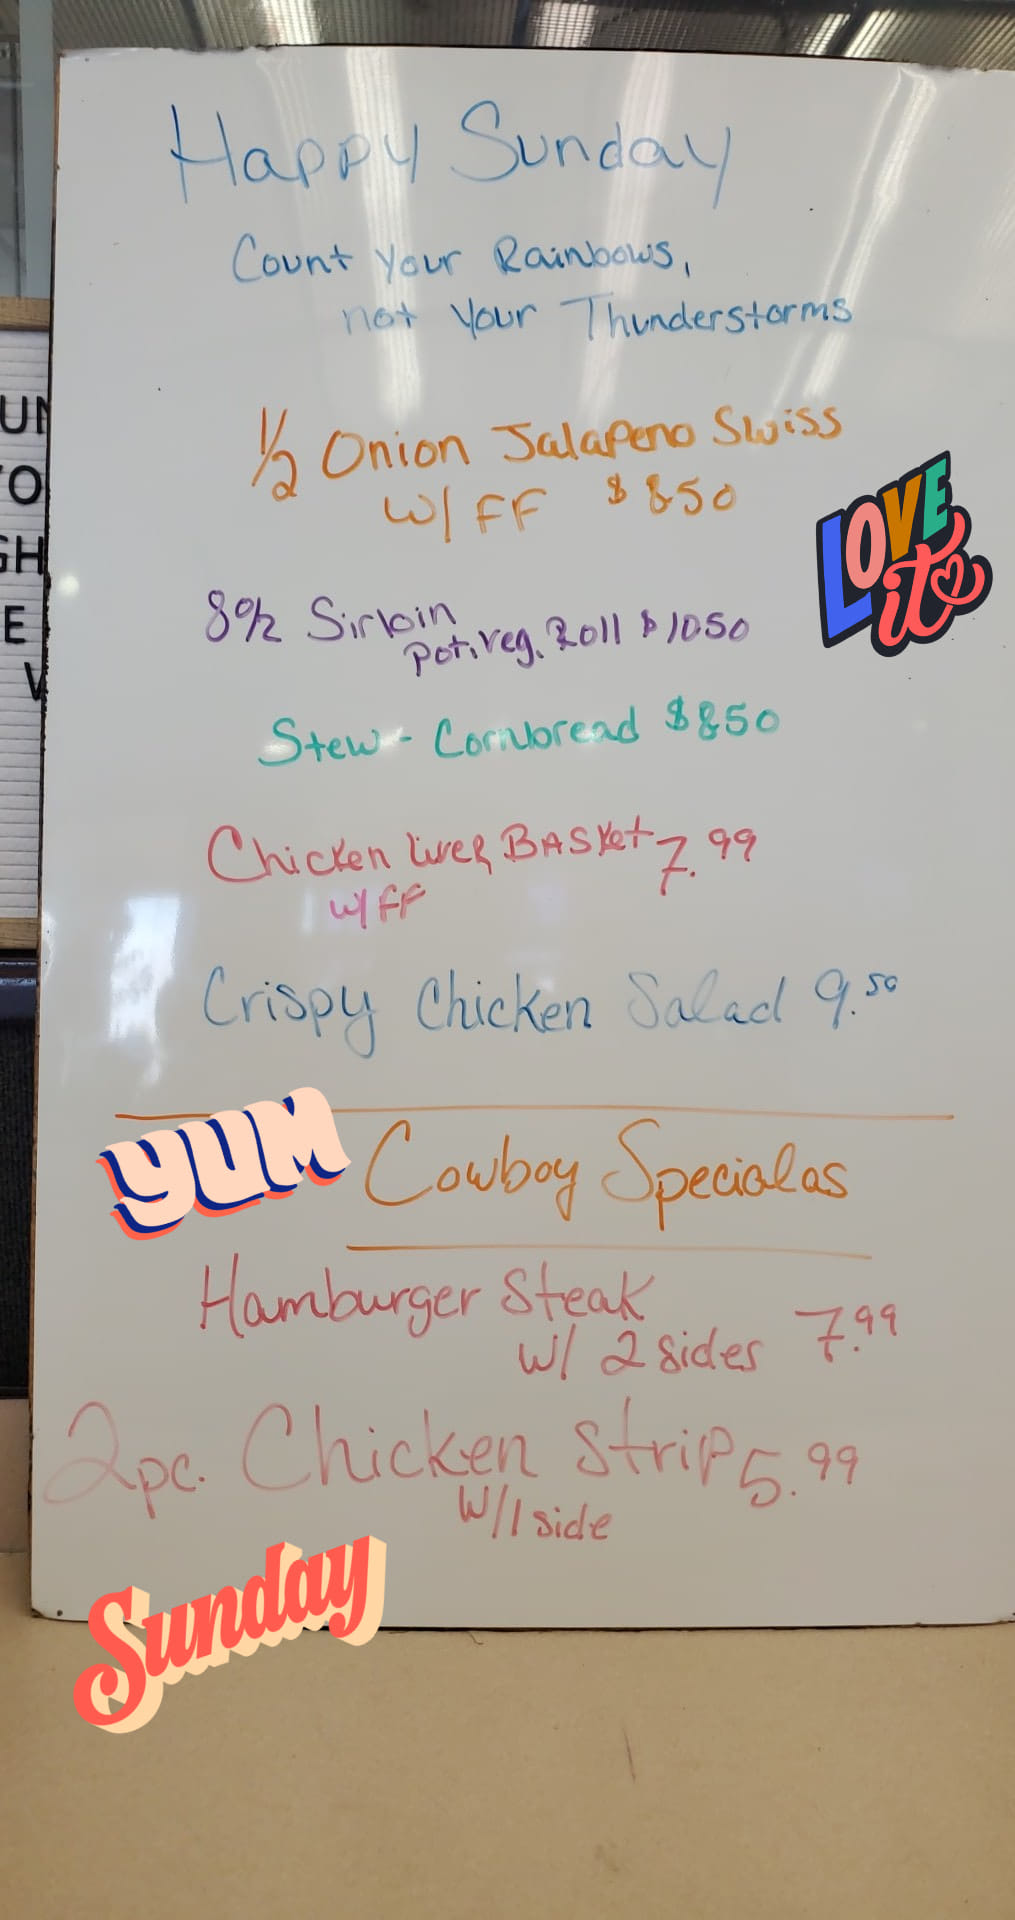 Happy Sunday
Count Your Rainbows,
not Your Thunderstorms
1/2 Onion Jalapeno Swiss
W/ FF $850
LOVE
it
8oz Sirloin
pot. veg. Roll $1050
Stew - Cornbread $850
Chicken liver BASKet 7.99
w/ FF
Crispy Chicken Salad 9.50
YUM
Cowboy Specialas
Hamburger Steak
W/ 2 sides 7.99
2pc. Chicken Strip 5.99
W/1 side
Sunday